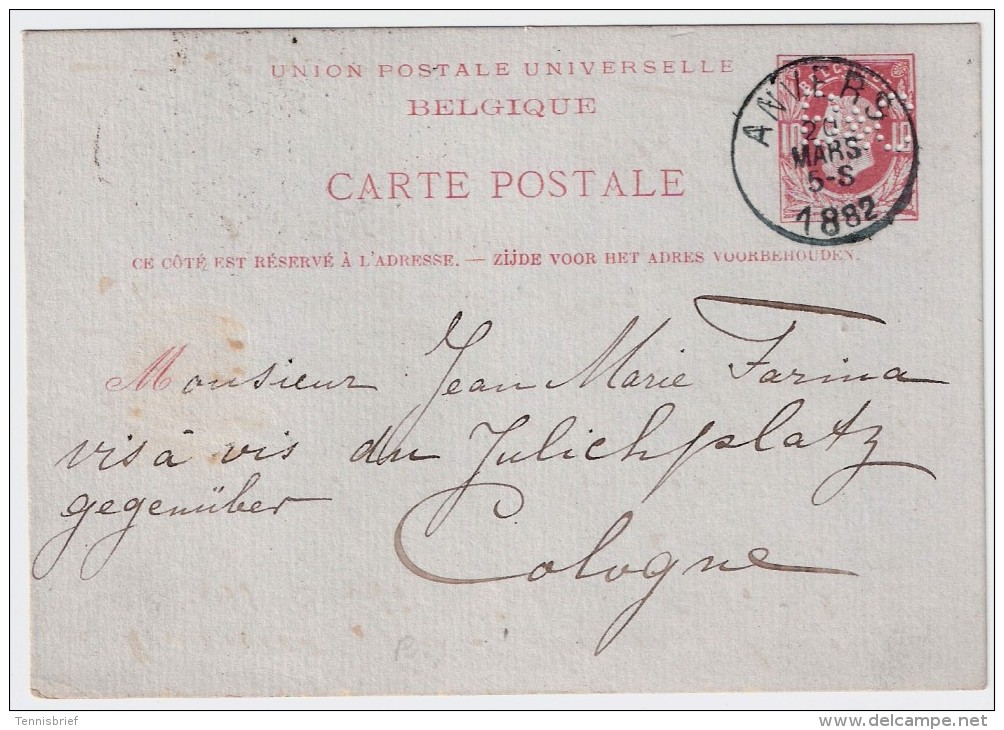 UNION POSTALE UNIVERSELLE
BELGIQUE
CARTE POSTALE
CE CÔTÉ EST RÉSERVÉ À L'ADRESSE. — ZIJDE VOOR HET ADRES VOORBEHOUDEN.
ANVERS
MARS
5-S
1882
10 10
Monsieur Jean Marie Farina
vis à vis du Julichplatz
gegenüber
Cologne
Tennisbrief
delcampe.net